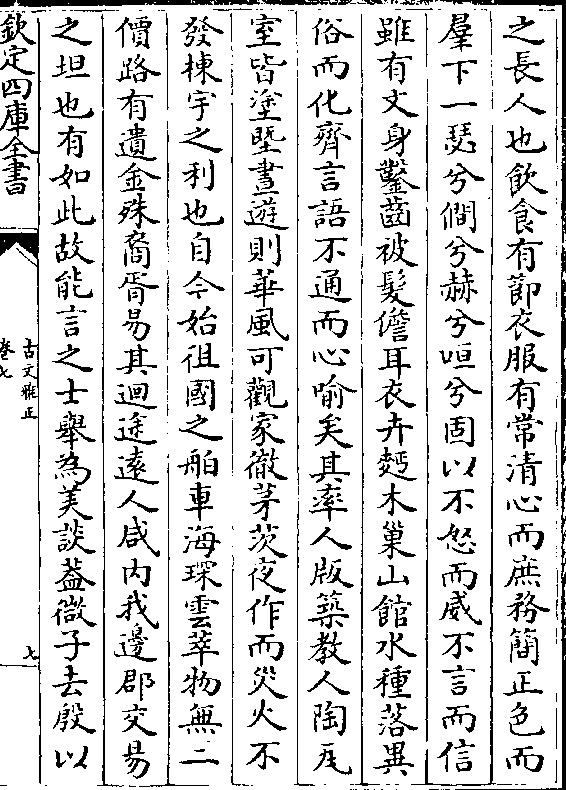 之長人也飲食有節衣服有常清心而庶務簡正色而
羣下一瑟兮僩兮赫兮咺兮固以不怒而威不言而信
雖有文身鑿齒被髮儋耳衣卉麪木巢山館水種落異
俗而化齊言語不通而心喻矣其率人版築教人陶瓦
室皆塗塈晝遊則華風可觀家徹茅茨夜作而災火不
發棟宇之利也自今始徂國之舶車海琛雲萃物無二
價路有遺金殊裔胥易其迴途遠人咸內我邊郡交易
之坦也有如此故能言之士舉為美談葢微子去殷以
欽定四庫全書
古文雅正
卷七
七